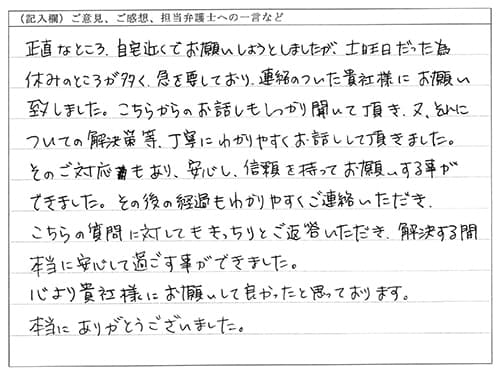 (記入欄) ご意見、ご感想、担当弁護士への一言など
正直なところ、自宅近くでお願いしようとしましたが、土曜日だった為
休みのところが多く、急を要しており、連絡のついた貴社様にお願い
致しました。こちらからのお話しもしっかり聞いて頂き、又、それに
ついての解決策等、丁寧にわかりやすくお話しして頂きました。
そのご対応もあり、安心し、信頼を持ってお願いする事が
できました。その後の経過もわかりやすくご連絡いただき、
こちらの質問に対してもきっちりとご返答いただき、解決する間
本当に安心して過ごす事ができました。
心より貴社様にお願いして良かったと思っております。
本当にありがとうございました。